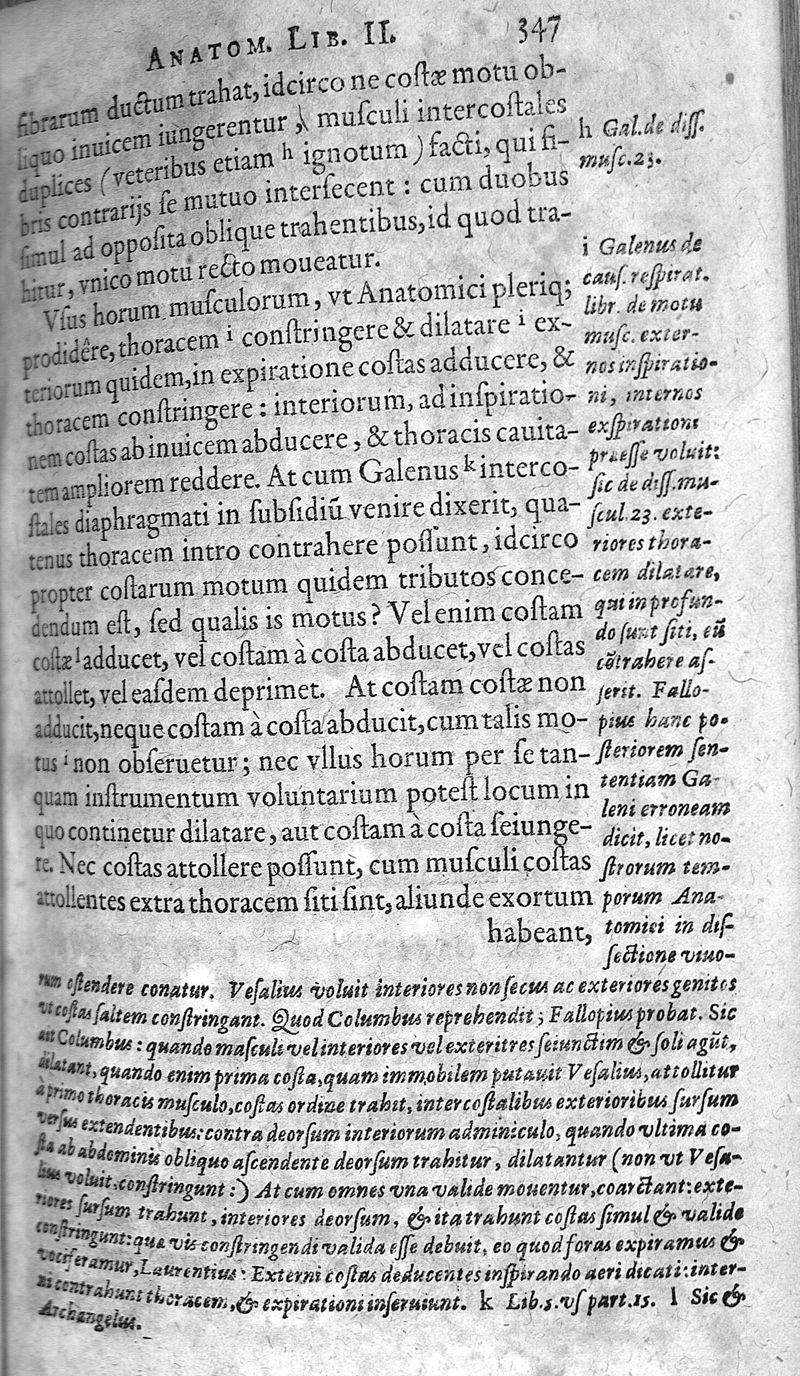 ANATOM. LIB. II. 347
fibrarum ductum trahat, idcirco ne costæ motu ob-
liquo inuicem iungerentur, musculi intercostales
duplices (veteribus etiam h ignotum) facti, qui fi-
bris contrarijs se mutuo intersecent: cum duobus
simul ad opposita oblique trahentibus, id quod tra-
hitur, vnico motu recto moueatur.
Vsus horum musculorum, vt Anatomici pleriq;
prodidêre, thoracem i constringere & dilatare i ex-
teriorum quidem, in expiratione costas adducere, &
thoracem constringere: interiorum, ad inspiratio-
nem costas ab inuicem abducere, & thoracis cauita-
tem ampliorem reddere. At cum Galenus k interco-
stales diaphragmati in subsidiũ venire dixerit, qua-
tenus thoracem intro contrahere possunt, idcirco
propter costarum motum quidem tributos conce-
dendum est, sed qualis is motus? Vel enim costam
costæ l adducet, vel costam à costa abducet, vel costas
attollet, vel easdem deprimet. At costam costæ non
adducit, neque costam à costa abducit, cum talis mo-
tus i non obseruetur; nec vllus horum per se tan-
quam instrumentum voluntarium potest locum in
quo continetur dilatare, aut costam à costa seiunge-
re. Nec costas attollere possunt, cum musculi costas
attollentes extra thoracem siti sint, aliunde exortum
habeant,
h Gal. de diss.
musc. 23.
i Galenus de
caus. respirat.
libr. de motu
musc. exter-
nos inspiratio-
ni, internos
exspirationi
præesse voluit:
sic de diss. mu-
scul. 23. exte-
riores thora-
cem dilatare,
qui in profun-
do sunt siti, eũ
cõtrahere as-
serit. Fallo-
pius hanc po-
steriorem sen-
tentiam Ga-
leni erroneam
dicit, licet no-
strorum tem-
porum Ana-
tomici in dis-
sectione viuo-
rum ostendere conatur. Vesalius voluit interiores non secus ac exteriores genitos
vt costas saltem constringant. Quod Columbus reprehendit; Fallopius probat. Sic
ait Columbus: quando masculi vel interiores vel exteritres seiunctim & soli agũt,
dilatant, quando enim prima costa, quam immobilem putauit Vesalius, attollitur
à primo thoracis musculo, costas ordine trahit, intercostalibus exterioribus sursum
versus extendentibus: contra deorsum interiorum adminiculo, quando vltima co-
sta ab abdominis obliquo ascendente deorsum trahitur, dilatantur (non vt Vesa-
lius voluit, constringunt:) At cum omnes vna valide mouentur, coarctant: exte-
riores sursum trahunt, interiores deorsum, & ita trahunt costas simul & valide
constringunt: quæ vis constringendi valida esse debuit, eo quod foras expiramus &
vociferamur, Laurentius: Externi costas deducentes inspirando aeri dicati: inter-
ni contrahunt thoracem, & expirationi inseruiunt. k Lib. 5. vs part. 15. l Sic &
Archangelus.